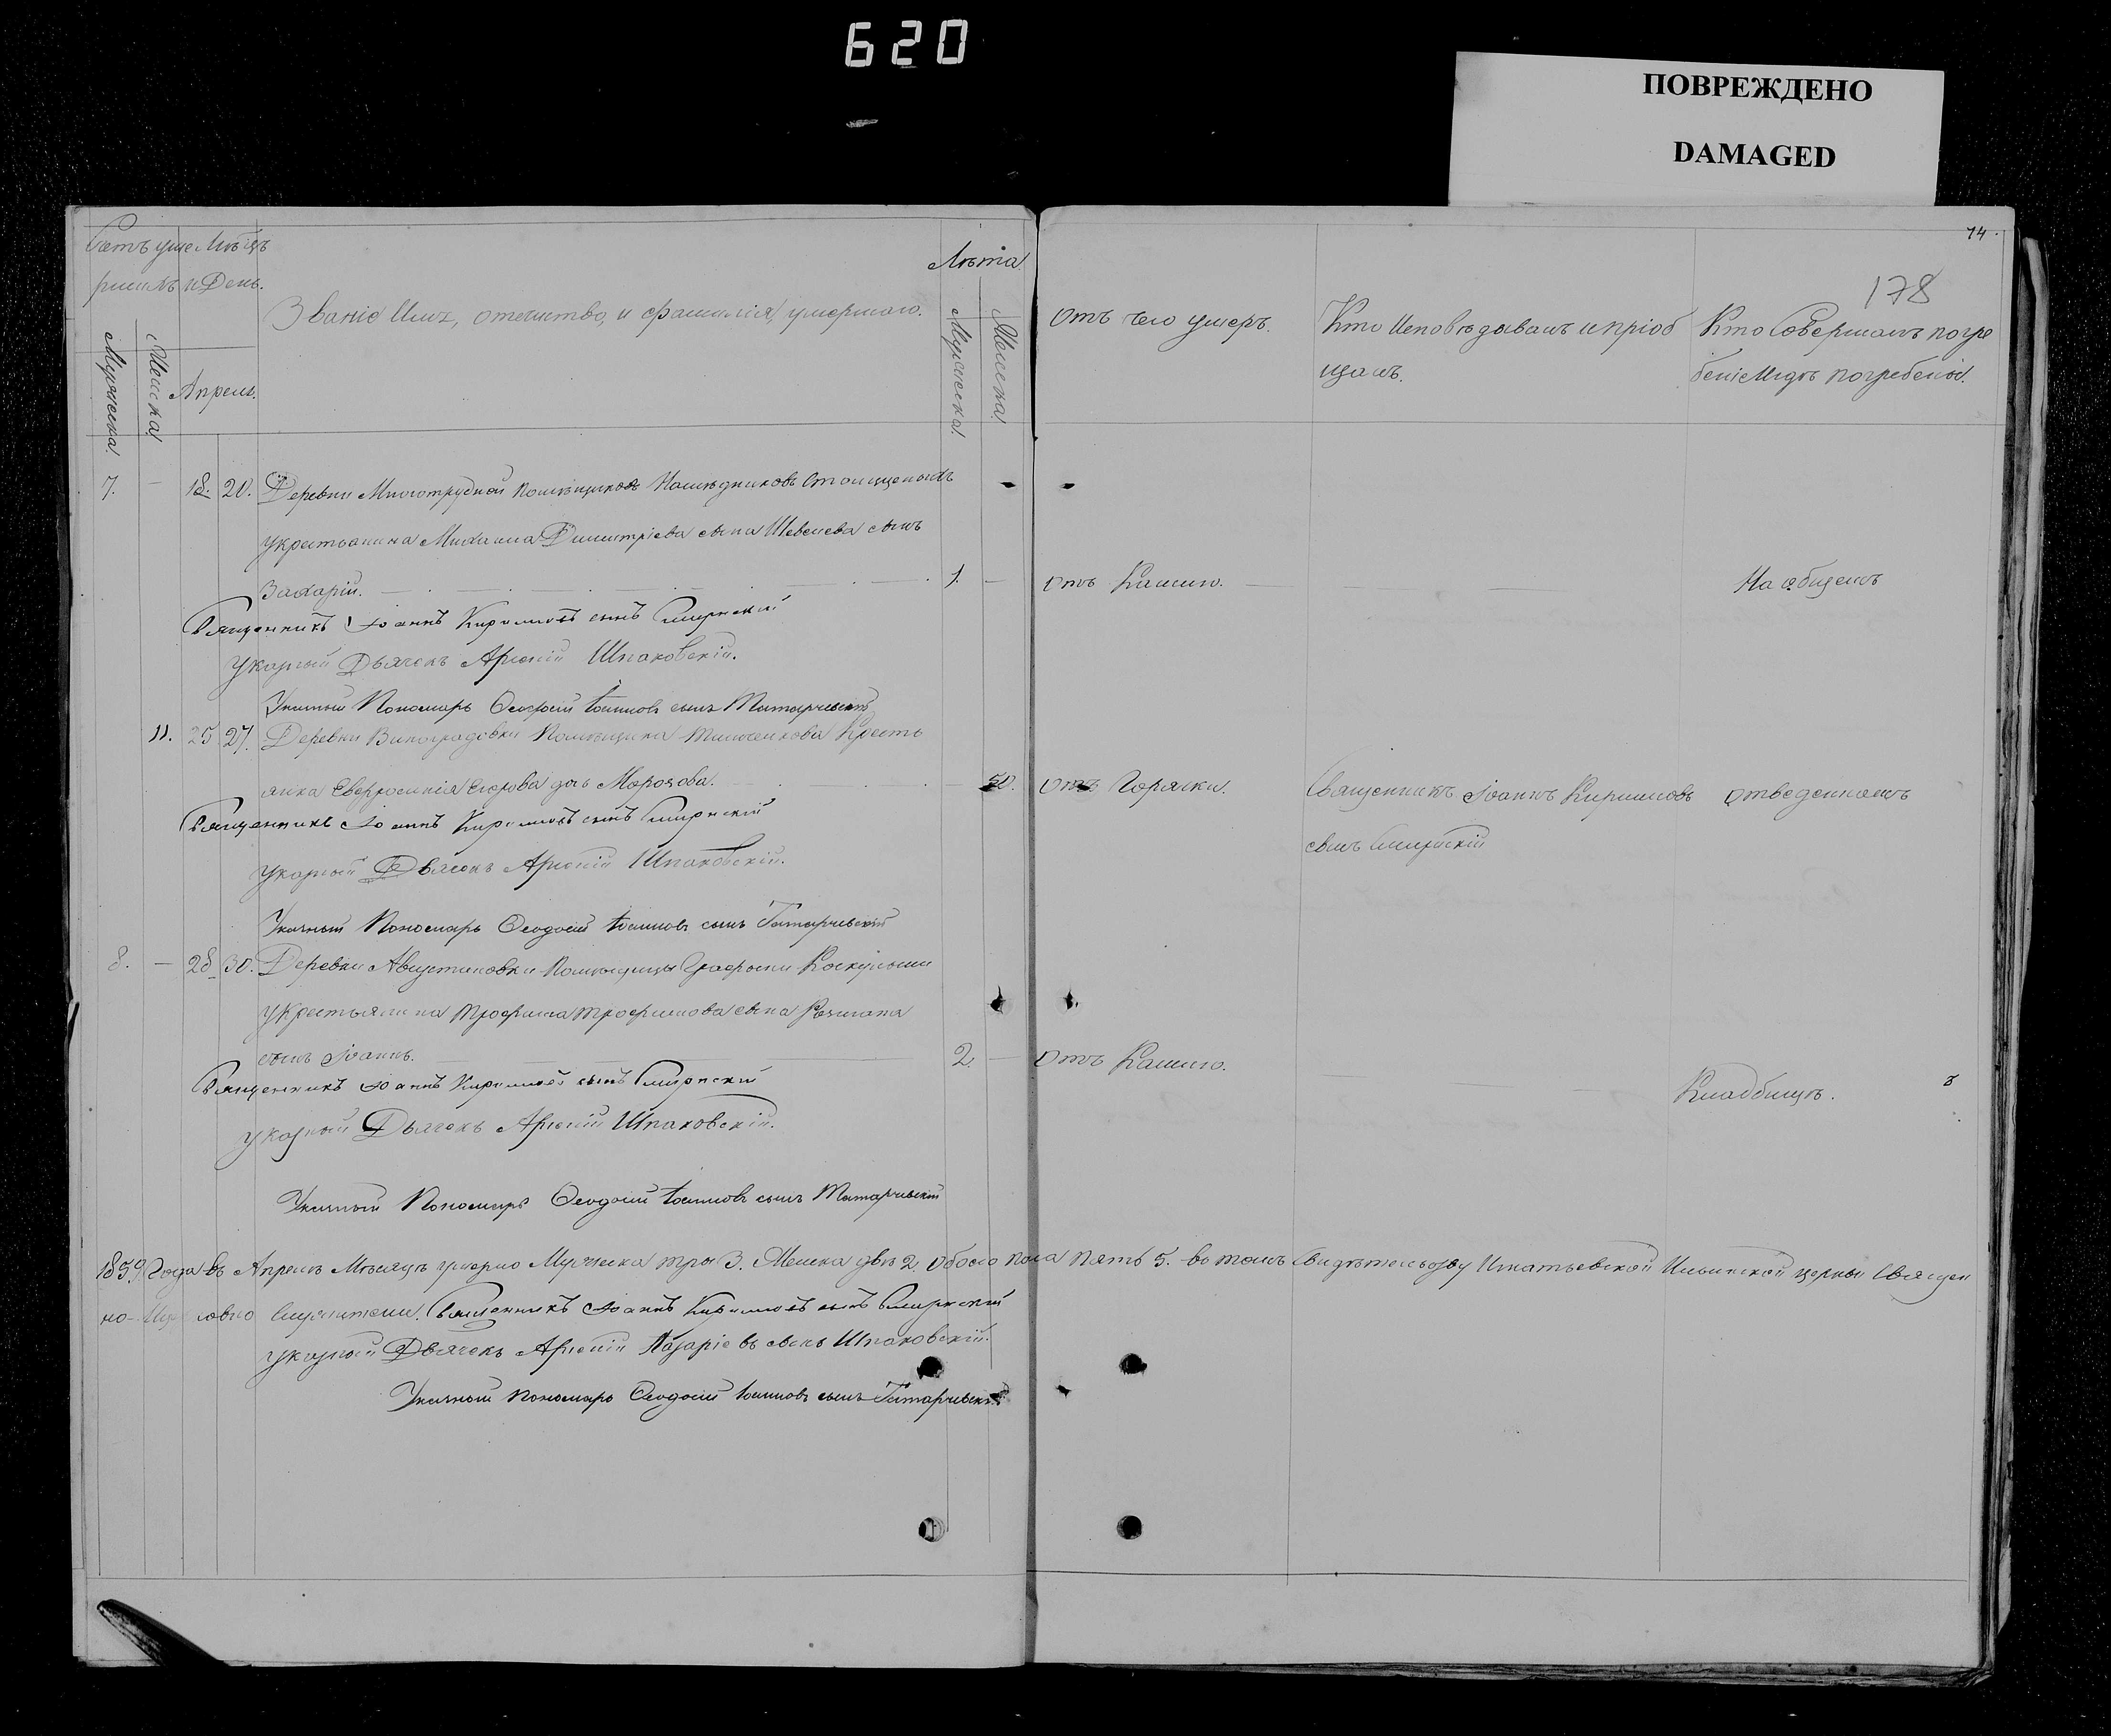 620
ПОВРЕЖДЕНО
DAMAGED
14.
178
Счетъ уме Мѣсцъ
ршимъ и День.
Званіе Имя, отечиство, и фамилія, умершаго.
Лѣта
Отъ чего умеръ.
Кто Исповѣдывалъ и пріоб
щалъ.
Кто Совершалъ погре
беніе И гдѣ погребены.
Мужеска.
Женска
Апрель.
Мужеска.
Женска.
7. - 18. 20. Деревни Многотрудной помѣщиковъ Наслѣдниковъ
у крестьянина Михаила Димитріева сына Шевелева сынъ
Захарій. 1. - отъ Кашлю. На общемъ
Священникъ Іоаннъ Кириловъ сынъ Смирнскій
указный Дьячекъ Арсеній Шпаковскій.
Указный Пономарь Феодосій Іоанновъ сынъ Татарчевскій
11. 25 27. Деревни Виноградовки Помѣщика Кресть
янка Евфросинія Егорова дочь Морозова. 50. отъ Горячки. Священникъ Іоаннъ Кирилловъ отведенномъ
сынъ Смирнскій
Священникъ Іоаннъ Кириловъ сынъ Смирнскій
указный Дьячекъ Арсеній Шпаковскій.
Указный Пономарь Феодосій Іоанновъ сынъ Татарчевскій
8. - 28 30. Деревни Августиновки Помѣщицы Графини
у крестьянина Трофима Трофимова сына
сынъ Іоаннъ. 2 - Отъ Кашлю.
Кладбищѣ.
Священникъ Іоаннъ Кириловъ сынъ Смирнскій
указный Дьячекъ Арсеній Шпаковскій.
Указный Пономарь Феодосій Іоанновъ сынъ Татарчевскій
1859 Года въ Апрелѣ Мѣсяцѣ умерло Мужеска три 3. Женска двѣ 2. Обоего пола пять 5. въ томъ Свидѣтельствую Игнатьевской Ильинской церкви Священ
но- Церковно Служители. Священникъ Іоаннъ Кириловъ сынъ Смирнскій
указный Дьячекъ Арсеній Назаріевъ сынъ Шпаковскій.
Указный Пономарь Феодосій Іоанновъ сынъ Татарчевскій